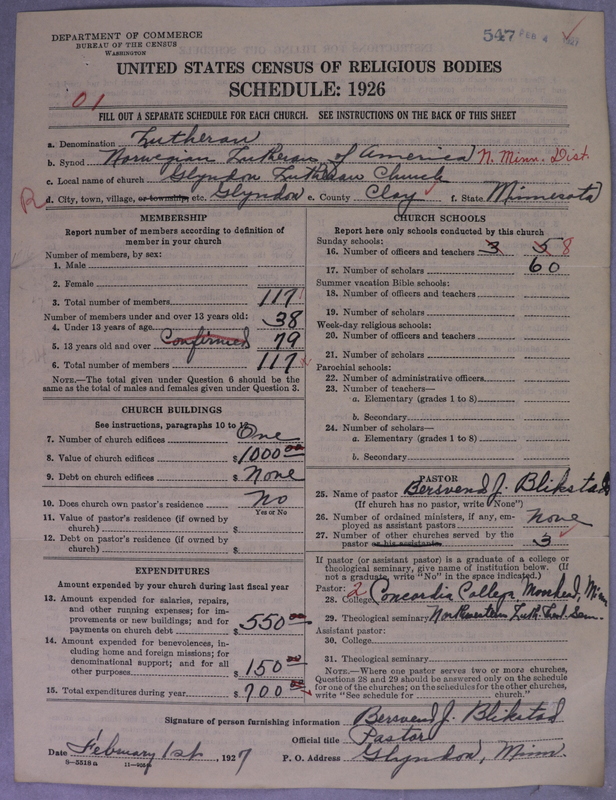 DEPARTMENT OF COMMERCE
BUREAU OF THE CENSUS
WASHINGTON
547 FEB 4 1927
UNITED STATES CENSUS OF RELIGIOUS BODIES
SCHEDULE: 1926
01
FILL OUT A SEPARATE SCHEDULE FOR EACH CHURCH. SEE INSTRUCTIONS ON THE BACK OF THIS SHEET
a. Denomination Lutheran
b. Synod Norwegian Lutheran of America N. Minn. Dist
c. Local name of church Glyndon Lutheran Church
R d. City, town, village, or township, etc. Glyndon e. County Clay f. State Minnesota
MEMBERSHIP
Report number of members according to definition of
member in your church
Number of members, by sex:
1. Male
2. Female
3. Total number of members 117
Number of members under and over 13 years old:
4. Under 13 years of age 38
5. 13 years old and over Confirmed 79
6. Total number of members 117
NOTE.—The total given under Question 6 should be the
same as the total of males and females given under Question 3.
CHURCH BUILDINGS
See instructions, paragraphs 10 to 12
7. Number of church edifices One
8. Value of church edifices $ 1000 00
9. Debt on church edifices $ None
10. Does church own pastor's residence No
Yes or No
11. Value of pastor's residence (if owned by
church) $
12. Debt on pastor's residence (if owned by
church) $
EXPENDITURES
Amount expended by your church during last fiscal year
13. Amount expended for salaries, repairs,
and other running expenses; for im-
provements or new buildings; and for
payments on church debt $ 550 00
14. Amount expended for benevolences, in-
cluding home and foreign missions; for
denominational support; and for all
other purposes $ 150 00
15. Total expenditures during year $ 700 00
CHURCH SCHOOLS
Report here only schools conducted by this church
Sunday schools:
16. Number of officers and teachers 3 5 8
17. Number of scholars 60
Summer vacation Bible schools:
18. Number of officers and teachers
19. Number of scholars
Week-day religious schools:
20. Number of officers and teachers
21. Number of scholars
Parochial schools:
22. Number of administrative officers
23. Number of teachers—
a. Elementary (grades 1 to 8)
b. Secondary
24. Number of scholars—
a. Elementary (grades 1 to 8)
b. Secondary
PASTOR
25. Name of pastor Bersvend J. Blikstad
(If church has no pastor, write "None")
26. Number of ordained ministers, if any, em-
ployed as assistant pastors None
27. Number of other churches served by the
pastor or his assistants 3
If pastor (or assistant pastor) is a graduate of a college or
theological seminary, give name of institution below. (If
not a graduate, write "No" in the space indicated.)
Pastor: 2
28. College Concordia College, Moorhead, Minn
29. Theological seminary Northwestern Luth. Theol. Sem.
Assistant pastor:
30. College
31. Theological seminary
NOTE.—Where one pastor serves two or more churches,
Questions 28 and 29 should be answered only on the schedule
for one of the churches; on the schedules for the other churches,
write "See schedule for church."
Signature of person furnishing information Bersvend J. Blikstad
Official title Pastor
Date February 1st, 1927 P. O. Address Glyndon, Minn.
8-5518 a